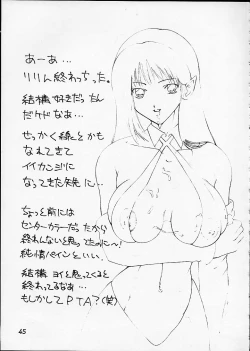 あーあ…
りりん終わっちった。
結構好きだったん
だケドなあ…
せっかく線とかも
なれてきて
イイカンジに
なってきた矢先に…
ちょっと前には
センターカラーだったから
終わんないと思ってたのに〜!
純情パインといい、
結構ヨイと思ってくると
終わってるなあ…
もしかしてPTA?(笑)
45